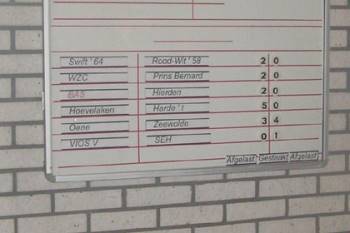 Swift '64 Rood-Wit '58 2 0
WZC Prins Bernard 2 0
BAS Hierden 2 0
Hoevelaken Harde 't 5 0
Oene Zeewolde 3 4
VIOS V SEH 0 1
Afgelast Gestaakt Afgelast